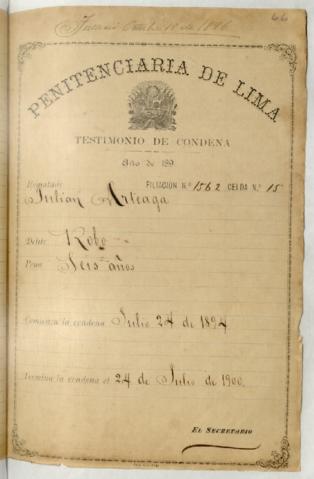 Octubre 18 de 1896
66
PENITENCIARIA DE LIMA
TESTIMONIO DE CONDENA
Año de 189
Rematado FILIACIÓN N.º 1562 CELDA N.º 15
Julian Arteaga
Delito Robo
Pena Seis años
Comienza la condena Julio 24 de 1894
Termina la condena el 24 de Julio de 1900
EL SECRETARIO